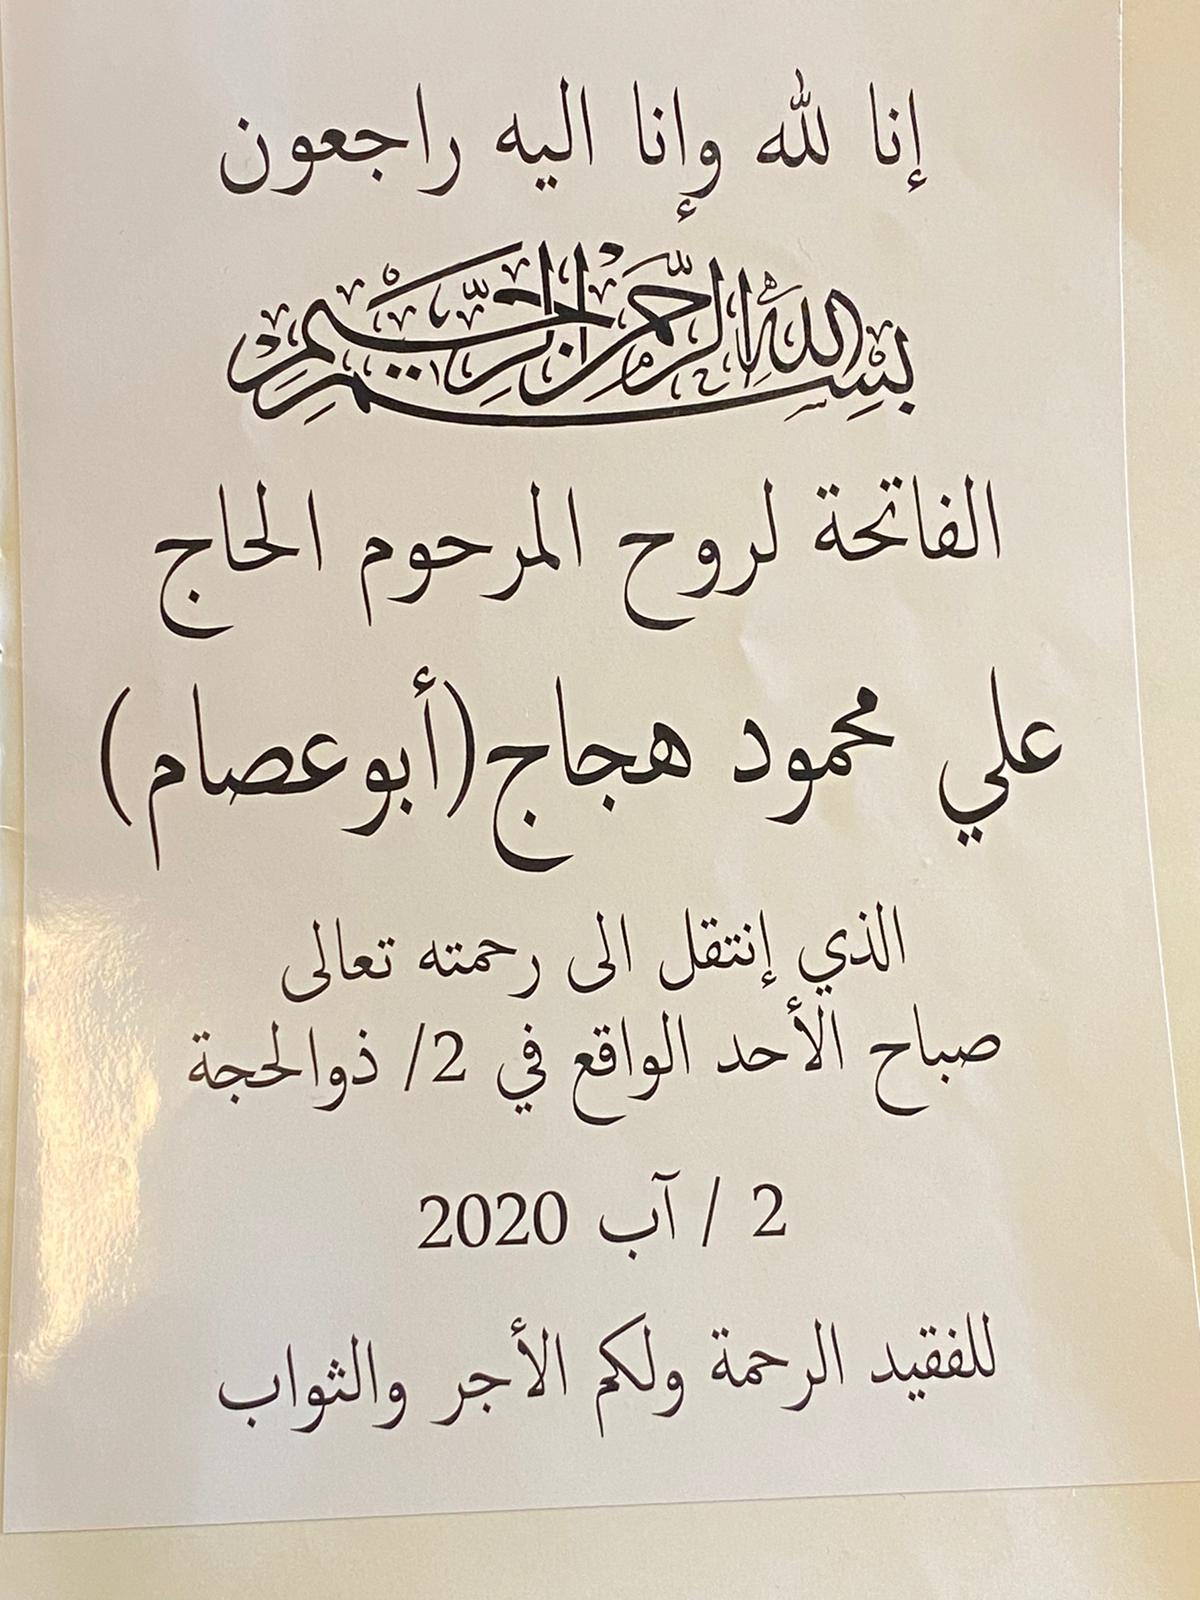 إنا لله وإنا اليه راجعون
بسم الله الرحمن الرحيم
الفاتحة لروح المرحوم الحاج
علي محمود هجاج(أبوعصام)
الذي إنتقل الى رحمته تعالى
صباح الأحد الواقع في 2/ ذوالحجة
2 / آب 2020
للفقيد الرحمة ولكم الأجر والثواب